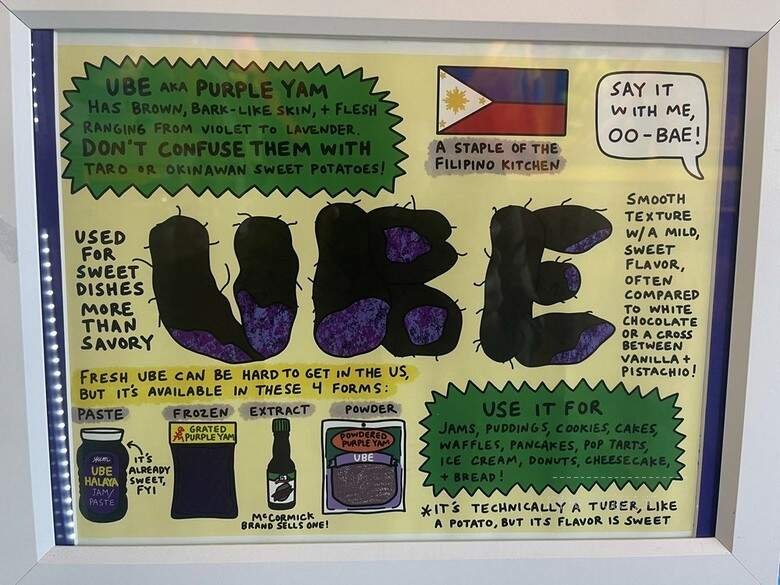 UBE AKA PURPLE YAM
HAS BROWN, BARK-LIKE SKIN, + FLESH
RANGING FROM VIOLET TO LAVENDER.
DON'T CONFUSE THEM WITH
TARO OR OKINAWAN SWEET POTATOES!
A STAPLE OF THE
FILIPINO KITCHEN
SAY IT
WITH ME,
OO-BAE!
USED
FOR
SWEET
DISHES
MORE
THAN
SAVORY
UBE
SMOOTH
TEXTURE
W/A MILD,
SWEET
FLAVOR,
OFTEN
COMPARED
TO WHITE
CHOCOLATE
OR A CROSS
BETWEEN
VANILLA +
PISTACHIO!
FRESH UBE CAN BE HARD TO GET IN THE US,
BUT IT'S AVAILABLE IN THESE 4 FORMS:
PASTE
UBE
HALAYA
JAM/
PASTE
IT'S
ALREADY
SWEET,
FYI
FROZEN
GRATED
PURPLE YAM
EXTRACT
McCORMICK
BRAND SELLS ONE!
POWDER
POWDERED
PURPLE YAM
UBE
USE IT FOR
JAMS, PUDDINGS, COOKIES, CAKES,
WAFFLES, PANCAKES, POP TARTS,
ICE CREAM, DONUTS, CHEESECAKE,
+ BREAD!
*IT'S TECHNICALLY A TUBER, LIKE
A POTATO, BUT ITS FLAVOR IS SWEET